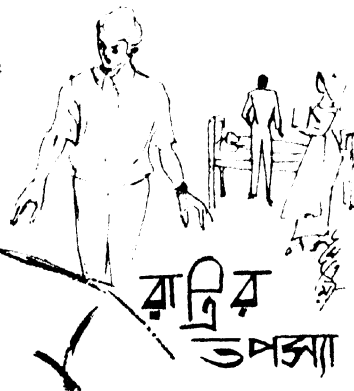 রাত্রির
তপস্যা